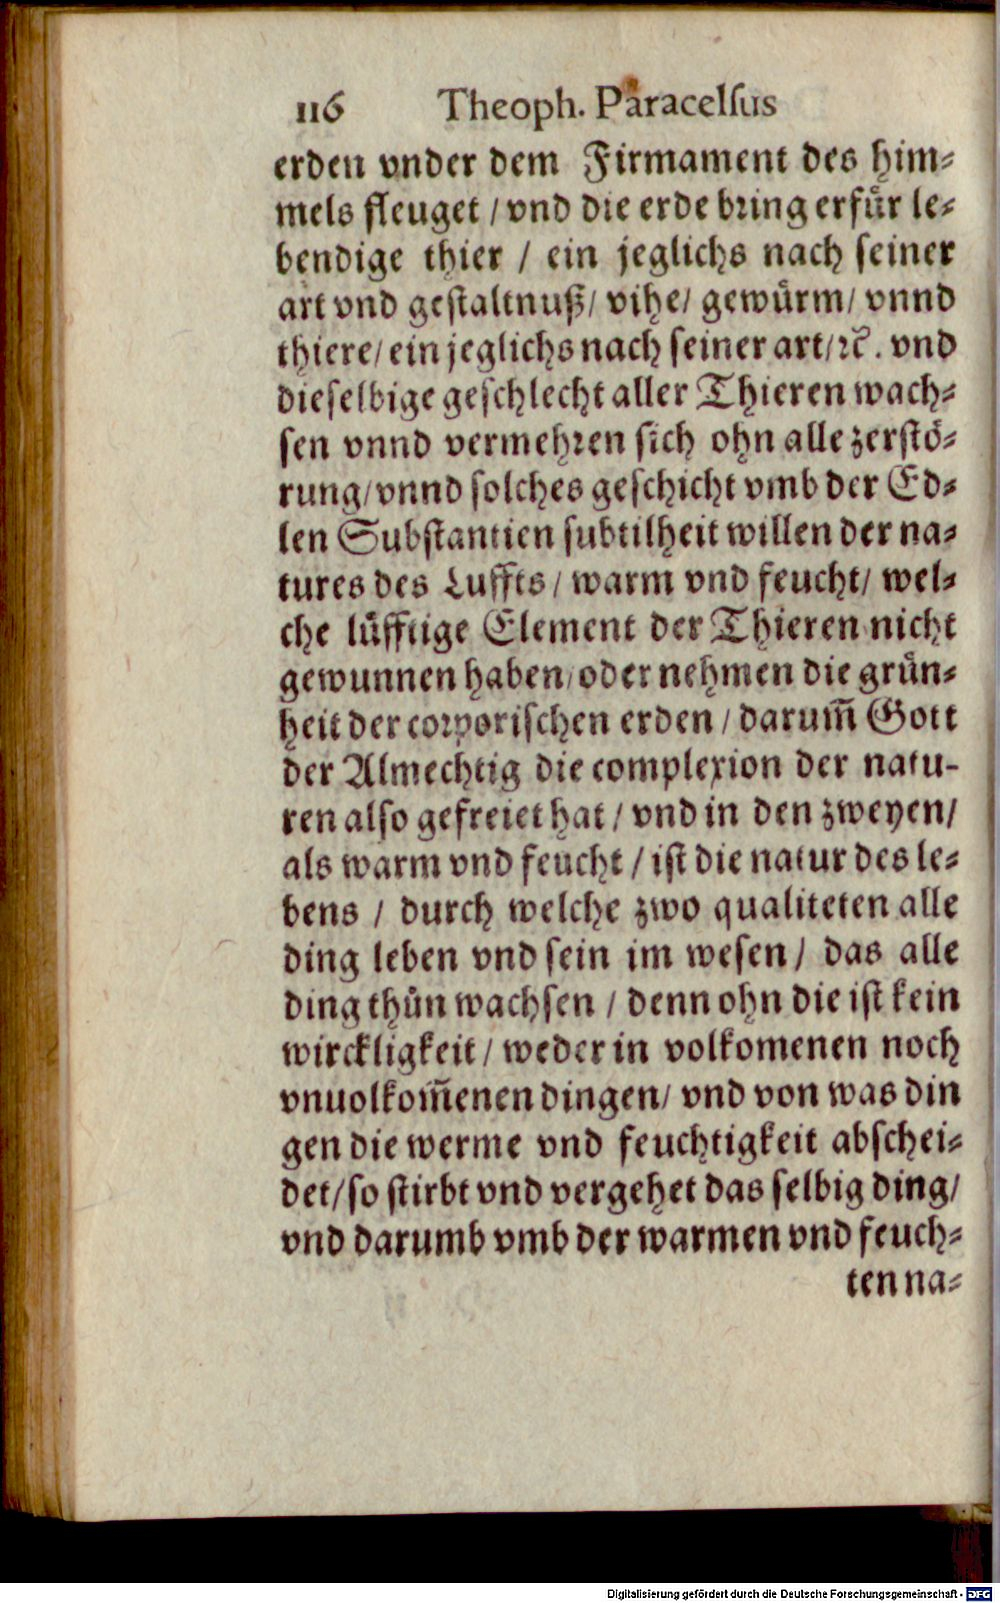 116 Theoph. Paracelſus
erden vnder dem Firmament des him⸗
mels fleuget / vnd die erde bring erfuͤr le⸗
bendige thier / ein jeglichs nach seiner
art vnd gestaltnuß/ vihe/ gewuͤrm/ vnnd
thiere/ ein jeglichs nach seiner art/ ꝛc̃. vnd
dieselbige geschlecht aller Thieren wach⸗
sen vnnd vermehren sich ohn alle zerstoͤ⸗
rung/ vnnd solches geschicht vmb der Ed⸗
len Substantien subtilheit willen der na⸗
tures des Luffts / warm vnd feucht/ wel⸗
che luͤfftige Element der Thieren nicht
gewunnen haben/ oder nehmen die gruͤn⸗
heit der corporischen erden / darum̃ Gott
der Almechtig die complexion der natu-
ren also gefreiet hat / vnd in den zweyen/
als warm vnd feucht / ist die natur des le⸗
bens / durch welche zwo qualiteten alle
ding leben vnd sein im wesen / das alle
ding thuͤn wachsen / denn ohn die ist kein
wirckligkeit / weder in volkomenen noch
vnuolkom̃enen dingen/ vnd von was din
gen die werme vnd feuchtigkeit abschei⸗
det/ so stirbt vnd vergehet das selbig ding/
vnd darumb vmb der warmen vnd feuch⸗
ten na⸗
Digitalisierung gefördert durch die Deutsche Forschungsgemeinschaft - DFG